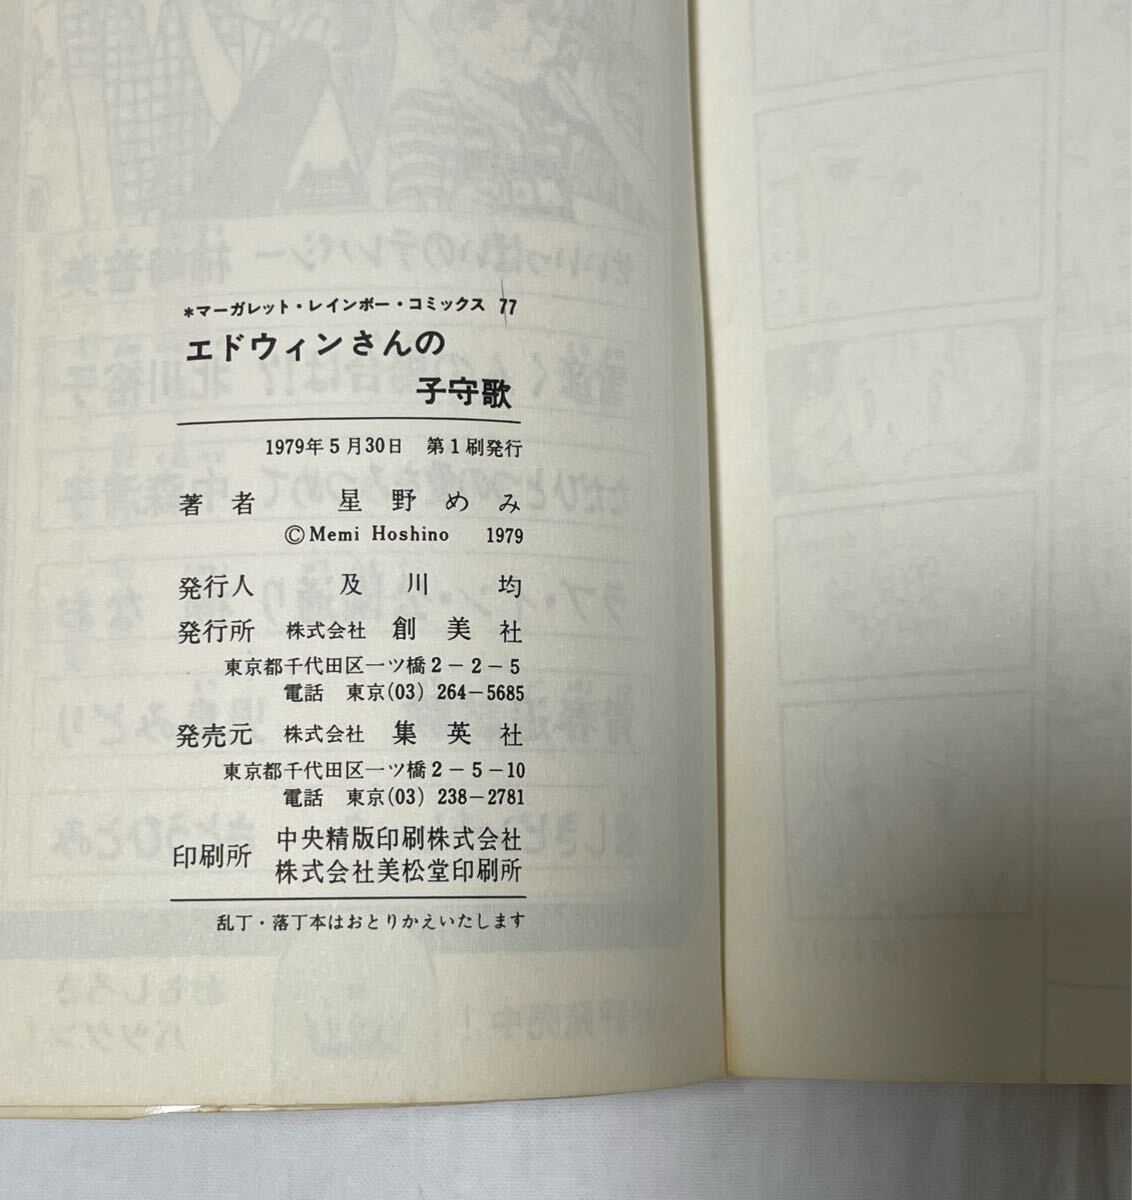 *マーガレット・レインボー・コミックス 77
エドウィンさんの
子守歌
1979年5月30日 第1刷発行
著者 星野めみ
©Memi Hoshino 1979
発行人 及川 均
発行所 株式会社 創美社
東京都千代田区一ツ橋2-2-5
電話 東京(03) 264-5685
発売元 株式会社 集英社
東京都千代田区一ツ橋2-5-10
電話 東京(03) 238-2781
印刷所 中央精版印刷株式会社
株式会社美松堂印刷所
乱丁・落丁本はおとりかえいたします